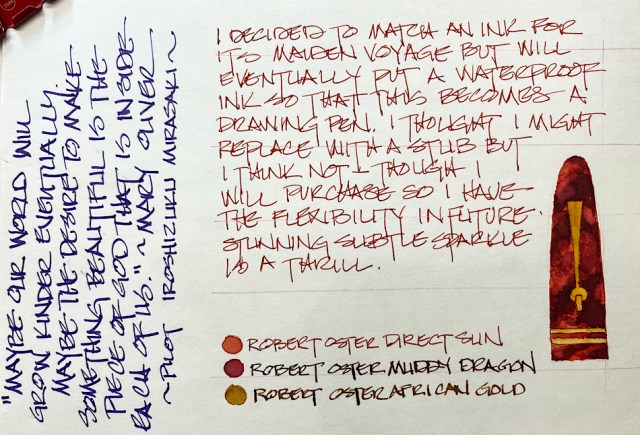 "MAYBE OUR WORLD WILL
GROW KINDER EVENTUALLY.
MAYBE THE DESIRE TO MAKE
SOMETHING BEAUTIFUL IS THE
PIECE OF GOD THAT IS INSIDE
EACH OF US." ~ MARY OLIVER
~ PILOT IROSHIZUKU MURASAKI ~
I DECIDED TO MATCH AN INK FOR
ITS MAIDEN VOYAGE BUT WILL
EVENTUALLY PUT A WATERPROOF
INK SO THAT THIS BECOMES A
DRAWING PEN. I THOUGHT I MIGHT
REPLACE WITH A STUB BUT
I THINK NOT - THOUGH I
WILL PURCHASE SO I HAVE
THE FLEXIBILITY IN FUTURE.
STUNNING SUBTLE SPARKLE
IS A THRILL.
ROBERT OSTER DIRECT SUN
ROBERT OSTER MUDDY DRAGON
ROBERT OSTER AFRICAN GOLD